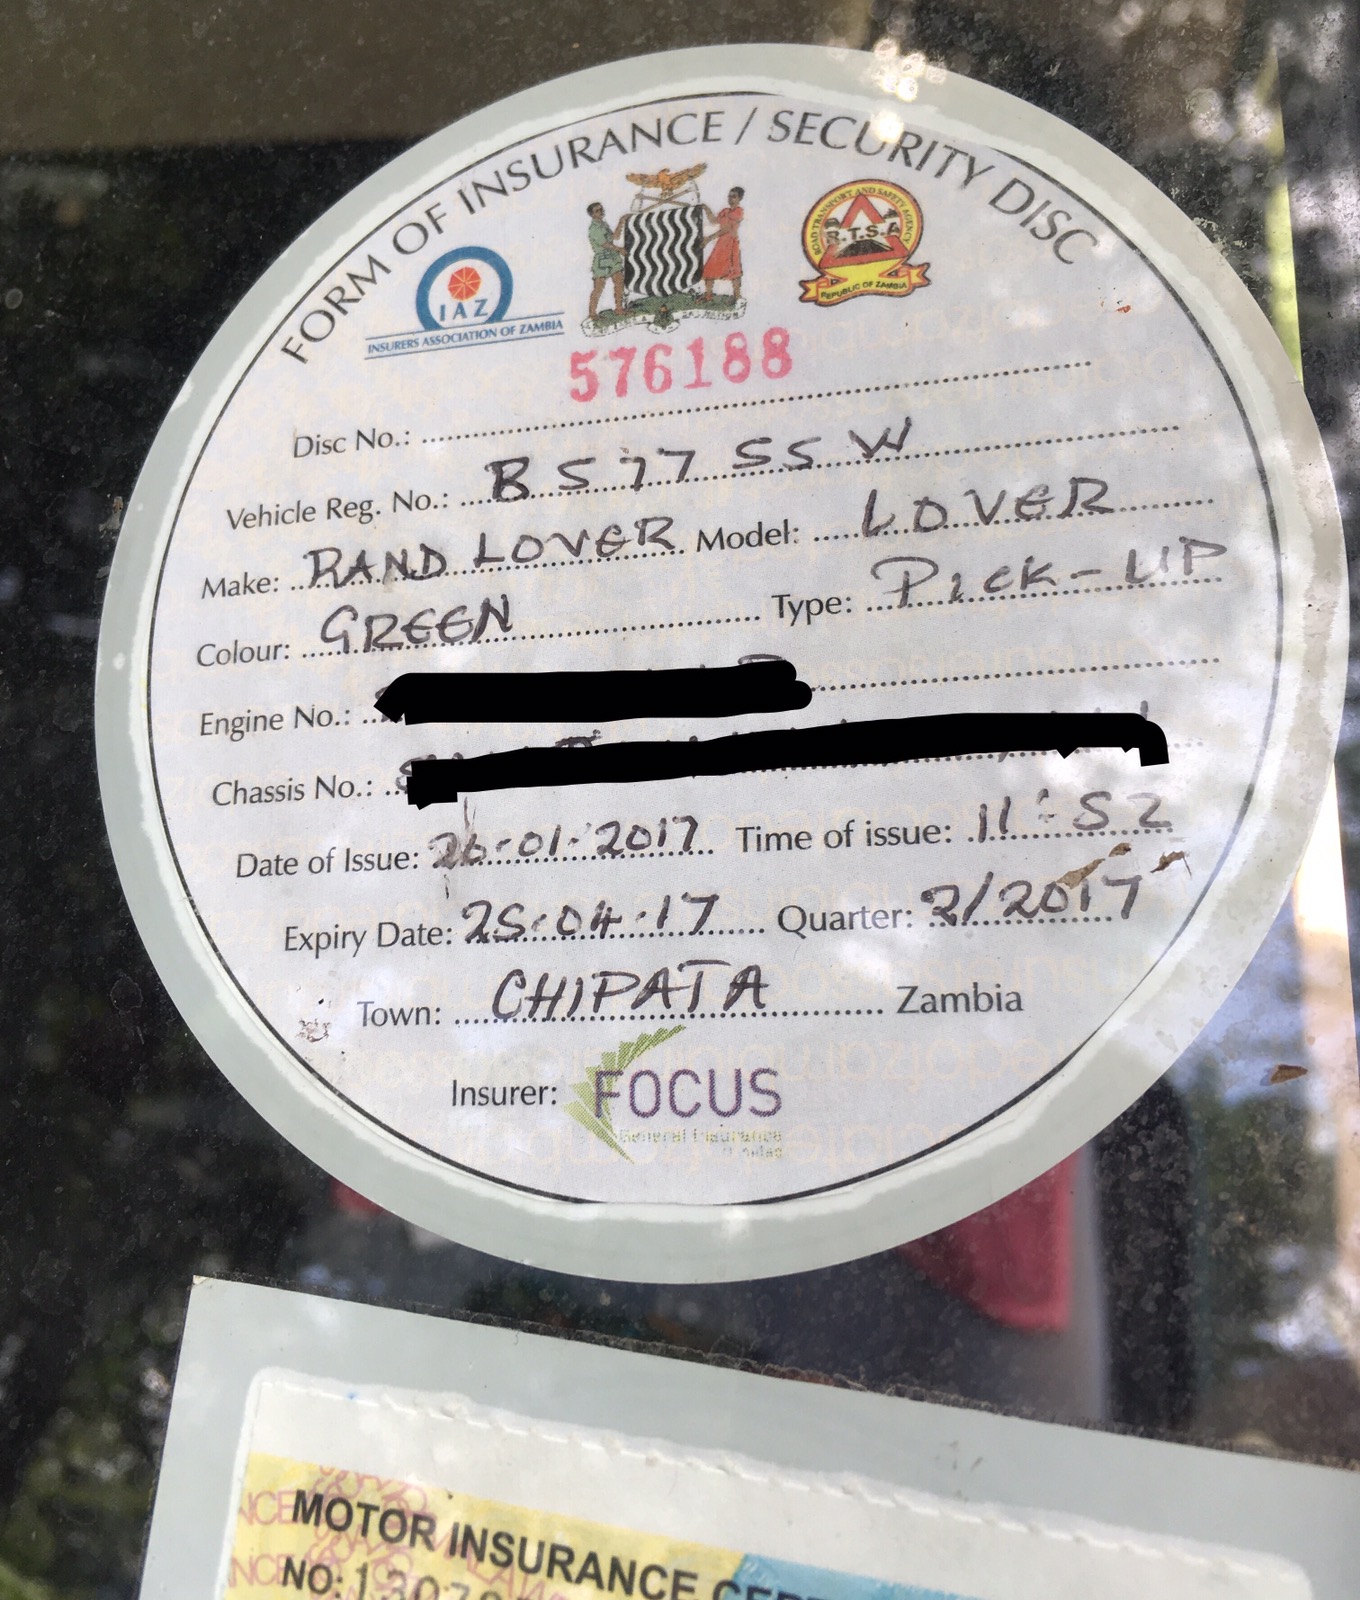 FORM OF INSURANCE / SECURITY DISC
IAZ
INSURERS ASSOCIATION OF ZAMBIA
ROAD TRANSPORT AND SAFETY AGENCY
R.T.S.A
REPUBLIC OF ZAMBIA
576188
Disc No.:
Vehicle Reg. No.: BS77 SSW
Make: RAND LOVER Model: LOVER
Colour: GREEN Type: PICK-UP
Engine No.:
Chassis No.:
Date of Issue: 26.01.2017 Time of issue: 11:52
Expiry Date: 25.04.17 Quarter: 2/2017
Town: CHIPATA Zambia
Insurer: FOCUS
General Insurance
MOTOR INSURANCE
NO: